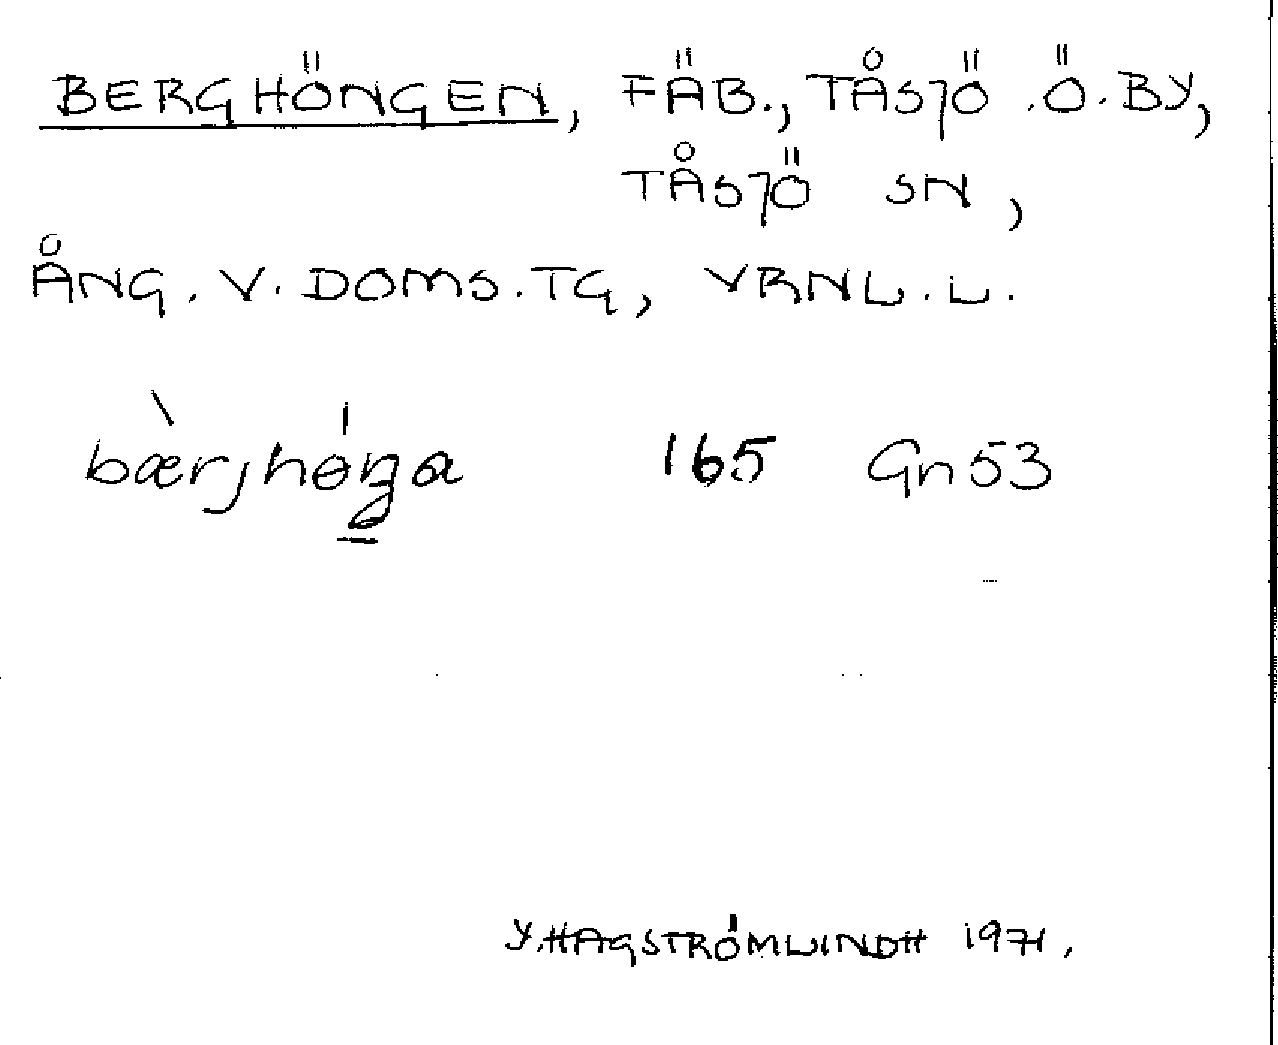 BERGHÖNGEN, FÄB., TÅSJÖ .Ö. BY,
TÅSJÖ SN,
ÅNG. V. DOMS. TG, VRNL. L.
bærjhøŋa 165 Gn 53
Y. HAGSTRÖMLINDH 1971.